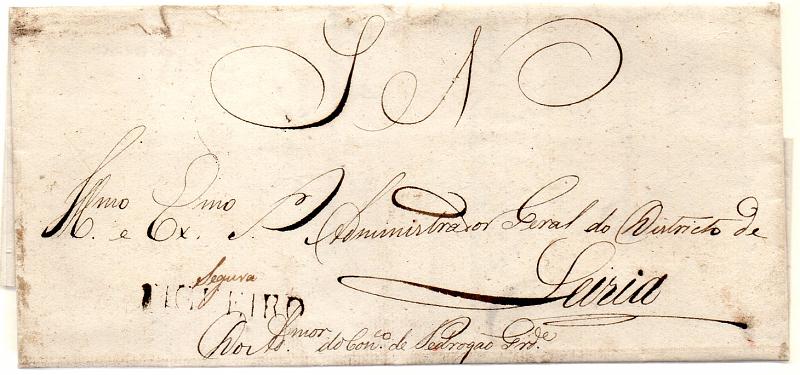 S N
Illmo. e Exmo. Sr. Administrador Geral do Districto de
Leiria
Segura
Do Admor. do Conco. de Pedrogaõ Grde.